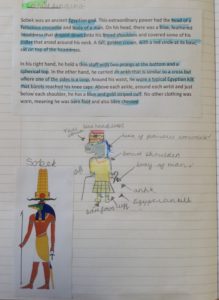 Sobek was an ancient Egyptian god. This extraordinary power had the head of a
ferocious crocodile and body of a man. On his head, there was a blue, feathered
headdress that draped down onto his broad shoulders and covered some of his
sides that arced around his neck. A tall, golden crown, with a red circle at its base,
sat on top of the headdress.
In his right hand, he held a thin staff with two prongs at the bottom and a
spherical top. In the other hand, he carried an ankh that is similar to a cross but
where one of the sides is a loop. Around his waist, he wore a typical Egyptian kilt
that barely reached his knee caps. Above each ankle, around each wrist and just
below each shoulder, he has a blue and gold striped cuff. No other clothing was
worn, meaning he was bare foot and also bare chested
head
broad shoulders
body of man
ankh
Egyptian kilt
cuff
Sobek